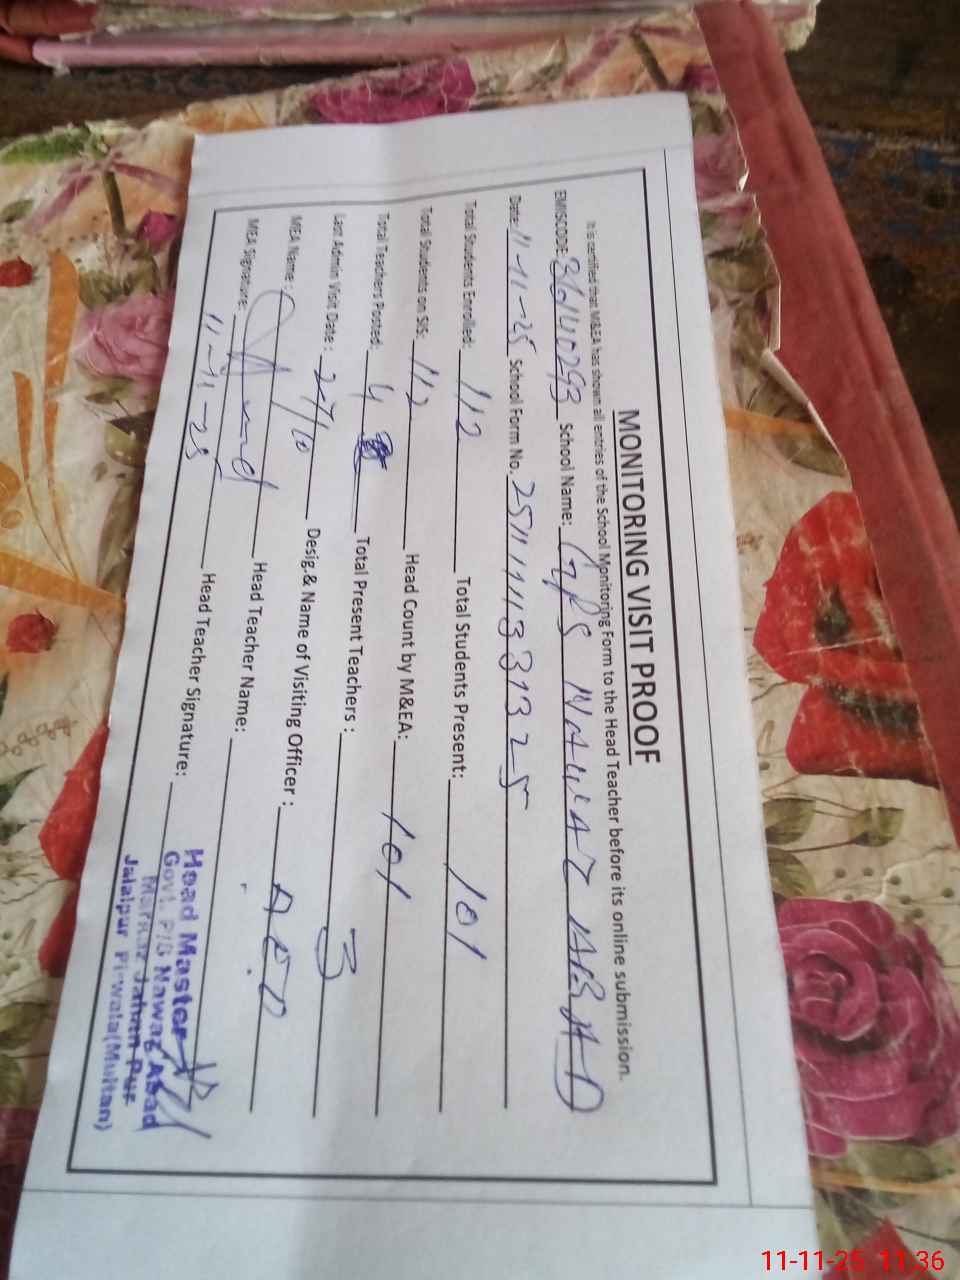 MONITORING VISIT PROOF
It is certified that M&EA has shown all entries of the School Monitoring Form to the Head Teacher before its online submission.
EMISCODE: School Name: GPS NAWAZ ABAD
Date: 11-11-25 School Form No.
Total Students Enrolled: 112 Total Students Present: 101
Total Students on SIS: 112 Head Count by M&EA: 101
Total Teachers Posted: 4 Total Present Teachers: 3
Last Admin Visit Date: 27/10 Desig.& Name of Visiting Officer: AEO
MEA Name: Head Teacher Name:
MEA Signature: Head Teacher Signature:
11-11-25
Head Master
Govt. P/S Nawaz Abad
Markaz Pur
Jalalpur Pirwala (Multan)
11-11-25 11:36